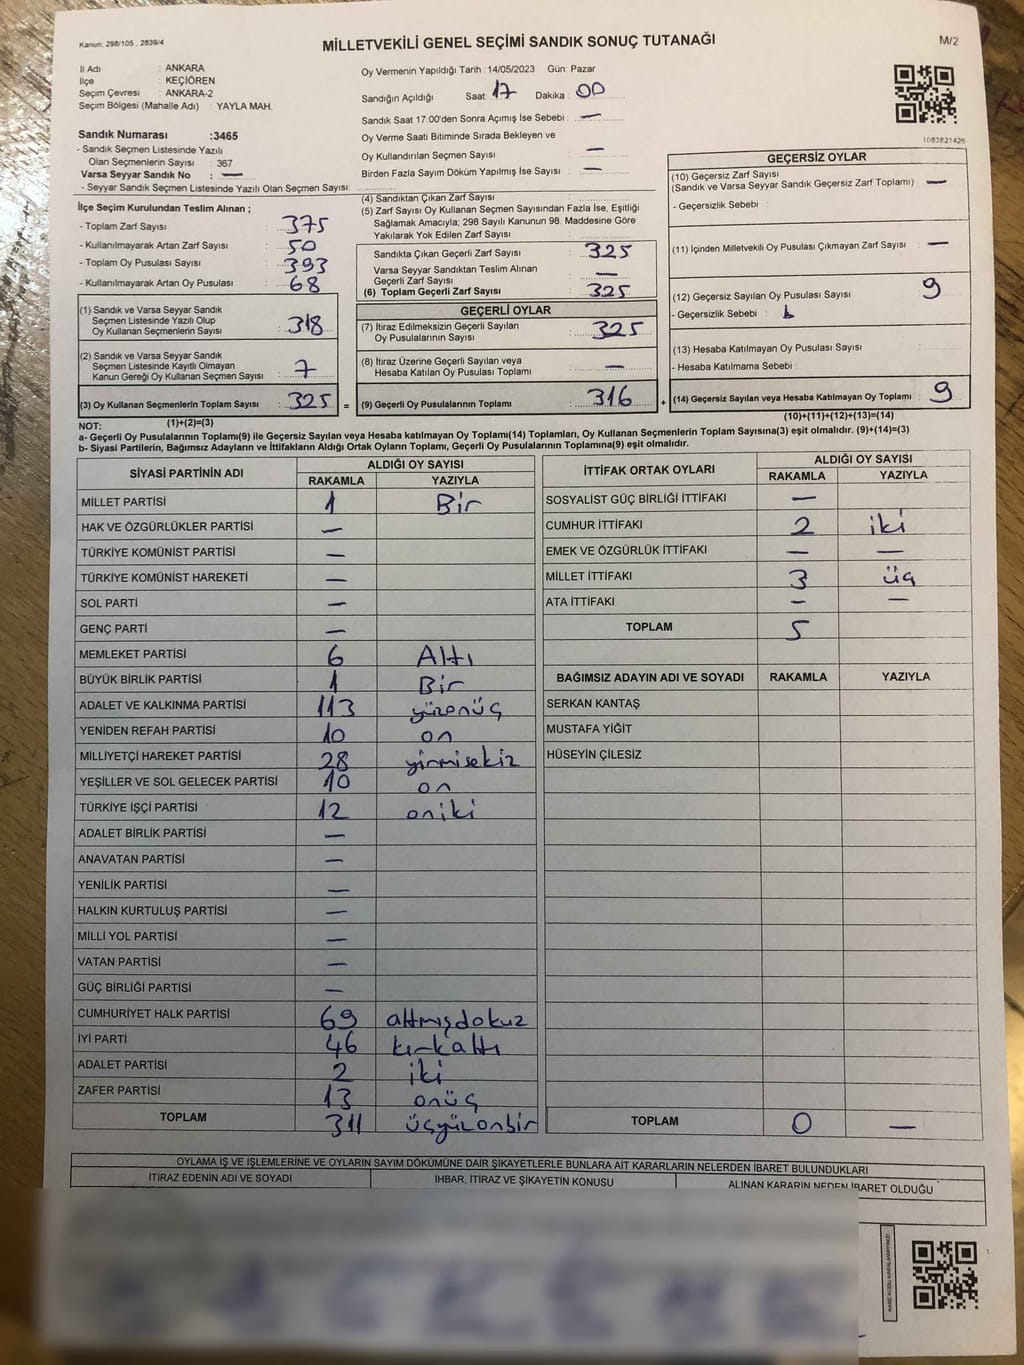 Kanun, 298/105 , 2839/4
MİLLETVEKİLİ GENEL SEÇİMİ SANDIK SONUÇ TUTANAĞI
M/2
İl Adı : ANKARA
İlçe : KEÇİÖREN
Seçim Çevresi : ANKARA-2
Seçim Bölgesi (Mahalle Adı) : YAYLA MAH.
Sandık Numarası :3465
- Sandık Seçmen Listesinde Yazılı
Olan Seçmenlerin Sayısı : 367
Varsa Seyyar Sandık No : —
- Seyyar Sandık Seçmen Listesinde Yazılı Olan Seçmen Sayısı:
Oy Vermenin Yapıldığı Tarih :14/05/2023 Gün: Pazar
Sandığın Açıldığı Saat: 17 Dakika : 00
Sandık Saat 17:00'den Sonra Açımış İse Sebebi : —
Oy Verme Saati Bitiminde Sırada Bekleyen ve
Oy Kullandırılan Seçmen Sayısı : —
Birden Fazla Sayım Döküm Yapılmış İse Sayısı : —
1083821426
İlçe Seçim Kurulundan Teslim Alınan ;
- Toplam Zarf Sayısı : 375
- Kullanılmayarak Artan Zarf Sayısı : 50
- Toplam Oy Pusulası Sayısı : 393
- Kullanılmayarak Artan Oy Pusulası : 68
(1) Sandık ve Varsa Seyyar Sandık
Seçmen Listesinde Yazılı Olup
Oy Kullanan Seçmenlerin Sayısı : 318
(2) Sandık ve Varsa Seyyar Sandık
Seçmen Listesinde Kayıtlı Olmayan
Kanun Gereği Oy Kullanan Seçmen Sayısı : 7
(3) Oy Kullanan Seçmenlerin Toplam Sayısı : 325 =
(1)+(2)=(3)
(4) Sandıktan Çıkan Zarf Sayısı :
(5) Zarf Sayısı Oy Kullanan Seçmen Sayısından Fazla İse, Eşitliği
Sağlamak Amacıyla; 298 Sayılı Kanunun 98. Maddesine Göre
Yakılarak Yok Edilen Zarf Sayısı :
Sandıkta Çıkan Geçerli Zarf Sayısı : 325
Varsa Seyyar Sandıktan Teslim Alınan
Geçerli Zarf Sayısı : —
(6) Toplam Geçerli Zarf Sayısı : 325
GEÇERLİ OYLAR
(7) İtiraz Edilmeksizin Geçerli Sayılan
Oy Pusulalarının Sayısı : 325
(8) İtiraz Üzerine Geçerli Sayılan veya
Hesaba Katılan Oy Pusulası Toplamı : —
(9) Geçerli Oy Pusulalarının Toplamı : 316 +
GEÇERSİZ OYLAR
(10) Geçersiz Zarf Sayısı
(Sandık ve Varsa Seyyar Sandık Geçersiz Zarf Toplamı) : —
- Geçersizlik Sebebi :
(11) İçinden Milletvekili Oy Pusulası Çıkmayan Zarf Sayısı : —
(12) Geçersiz Sayılan Oy Pusulası Sayısı : 9
- Geçersizlik Sebebi : b
(13) Hesaba Katılmayan Oy Pusulası Sayısı :
- Hesaba Katılmama Sebebi :
(14) Geçersiz Sayılan veya Hesaba Katılmayan Oy Toplamı : 9
(10)+(11)+(12)+(13)=(14)
NOT:
a- Geçerli Oy Pusulalarının Toplamı(9) ile Geçersiz Sayılan veya Hesaba katılmayan Oy Toplamı(14) Toplamları, Oy Kullanan Seçmenlerin Toplam Sayısına(3) eşit olmalıdır. (9)+(14)=(3)
b- Siyasi Partilerin, Bağımsız Adayların ve İttifakların Aldığı Ortak Oyların Toplamı, Geçerli Oy Pusulalarının Toplamına(9) eşit olmalıdır.
SİYASİ PARTİNİN ADI ALDIĞI OY SAYISI
RAKAMLA YAZIYLA
MİLLET PARTİSİ 1 Bir
HAK VE ÖZGÜRLÜKLER PARTİSİ —
TÜRKİYE KOMÜNİST PARTİSİ —
TÜRKİYE KOMÜNİST HAREKETİ —
SOL PARTİ —
GENÇ PARTİ —
MEMLEKET PARTİSİ 6 Altı
BÜYÜK BİRLİK PARTİSİ 1 Bir
ADALET VE KALKINMA PARTİSİ 113 yüzonüç
YENİDEN REFAH PARTİSİ 10 on
MİLLİYETÇİ HAREKET PARTİSİ 28 yirmisekiz
YEŞİLLER VE SOL GELECEK PARTİSİ 10 on
TÜRKİYE İŞÇİ PARTİSİ 12 oniki
ADALET BİRLİK PARTİSİ —
ANAVATAN PARTİSİ —
YENİLİK PARTİSİ —
HALKIN KURTULUŞ PARTİSİ —
MİLLİ YOL PARTİSİ —
VATAN PARTİSİ —
GÜÇ BİRLİĞİ PARTİSİ —
CUMHURİYET HALK PARTİSİ 69 altmışdokuz
İYİ PARTİ 46 kırkaltı
ADALET PARTİSİ 2 iki
ZAFER PARTİSİ 13 onüç
TOPLAM 311 üçyüzonbir
İTTİFAK ORTAK OYLARI ALDIĞI OY SAYISI
RAKAMLA YAZIYLA
SOSYALİST GÜÇ BİRLİĞİ İTTİFAKI —
CUMHUR İTTİFAKI 2 iki
EMEK VE ÖZGÜRLÜK İTTİFAKI — —
MİLLET İTTİFAKI 3 üç
ATA İTTİFAKI — —
TOPLAM 5
BAĞIMSIZ ADAYIN ADI VE SOYADI RAKAMLA YAZIYLA
SERKAN KANTAŞ
MUSTAFA YİĞİT
HÜSEYİN ÇİLESİZ
TOPLAM 0 —
OYLAMA İŞ VE İŞLEMLERİNE VE OYLARIN SAYIM DÖKÜMÜNE DAİR ŞİKAYETLERLE BUNLARA AİT KARARLARIN NELERDEN İBARET BULUNDUKLARI
İTİRAZ EDENİN ADI VE SOYADI İHBAR, İTİRAZ VE ŞİKAYETİN KONUSU ALINAN KARARIN NEDEN İBARET OLDUĞU